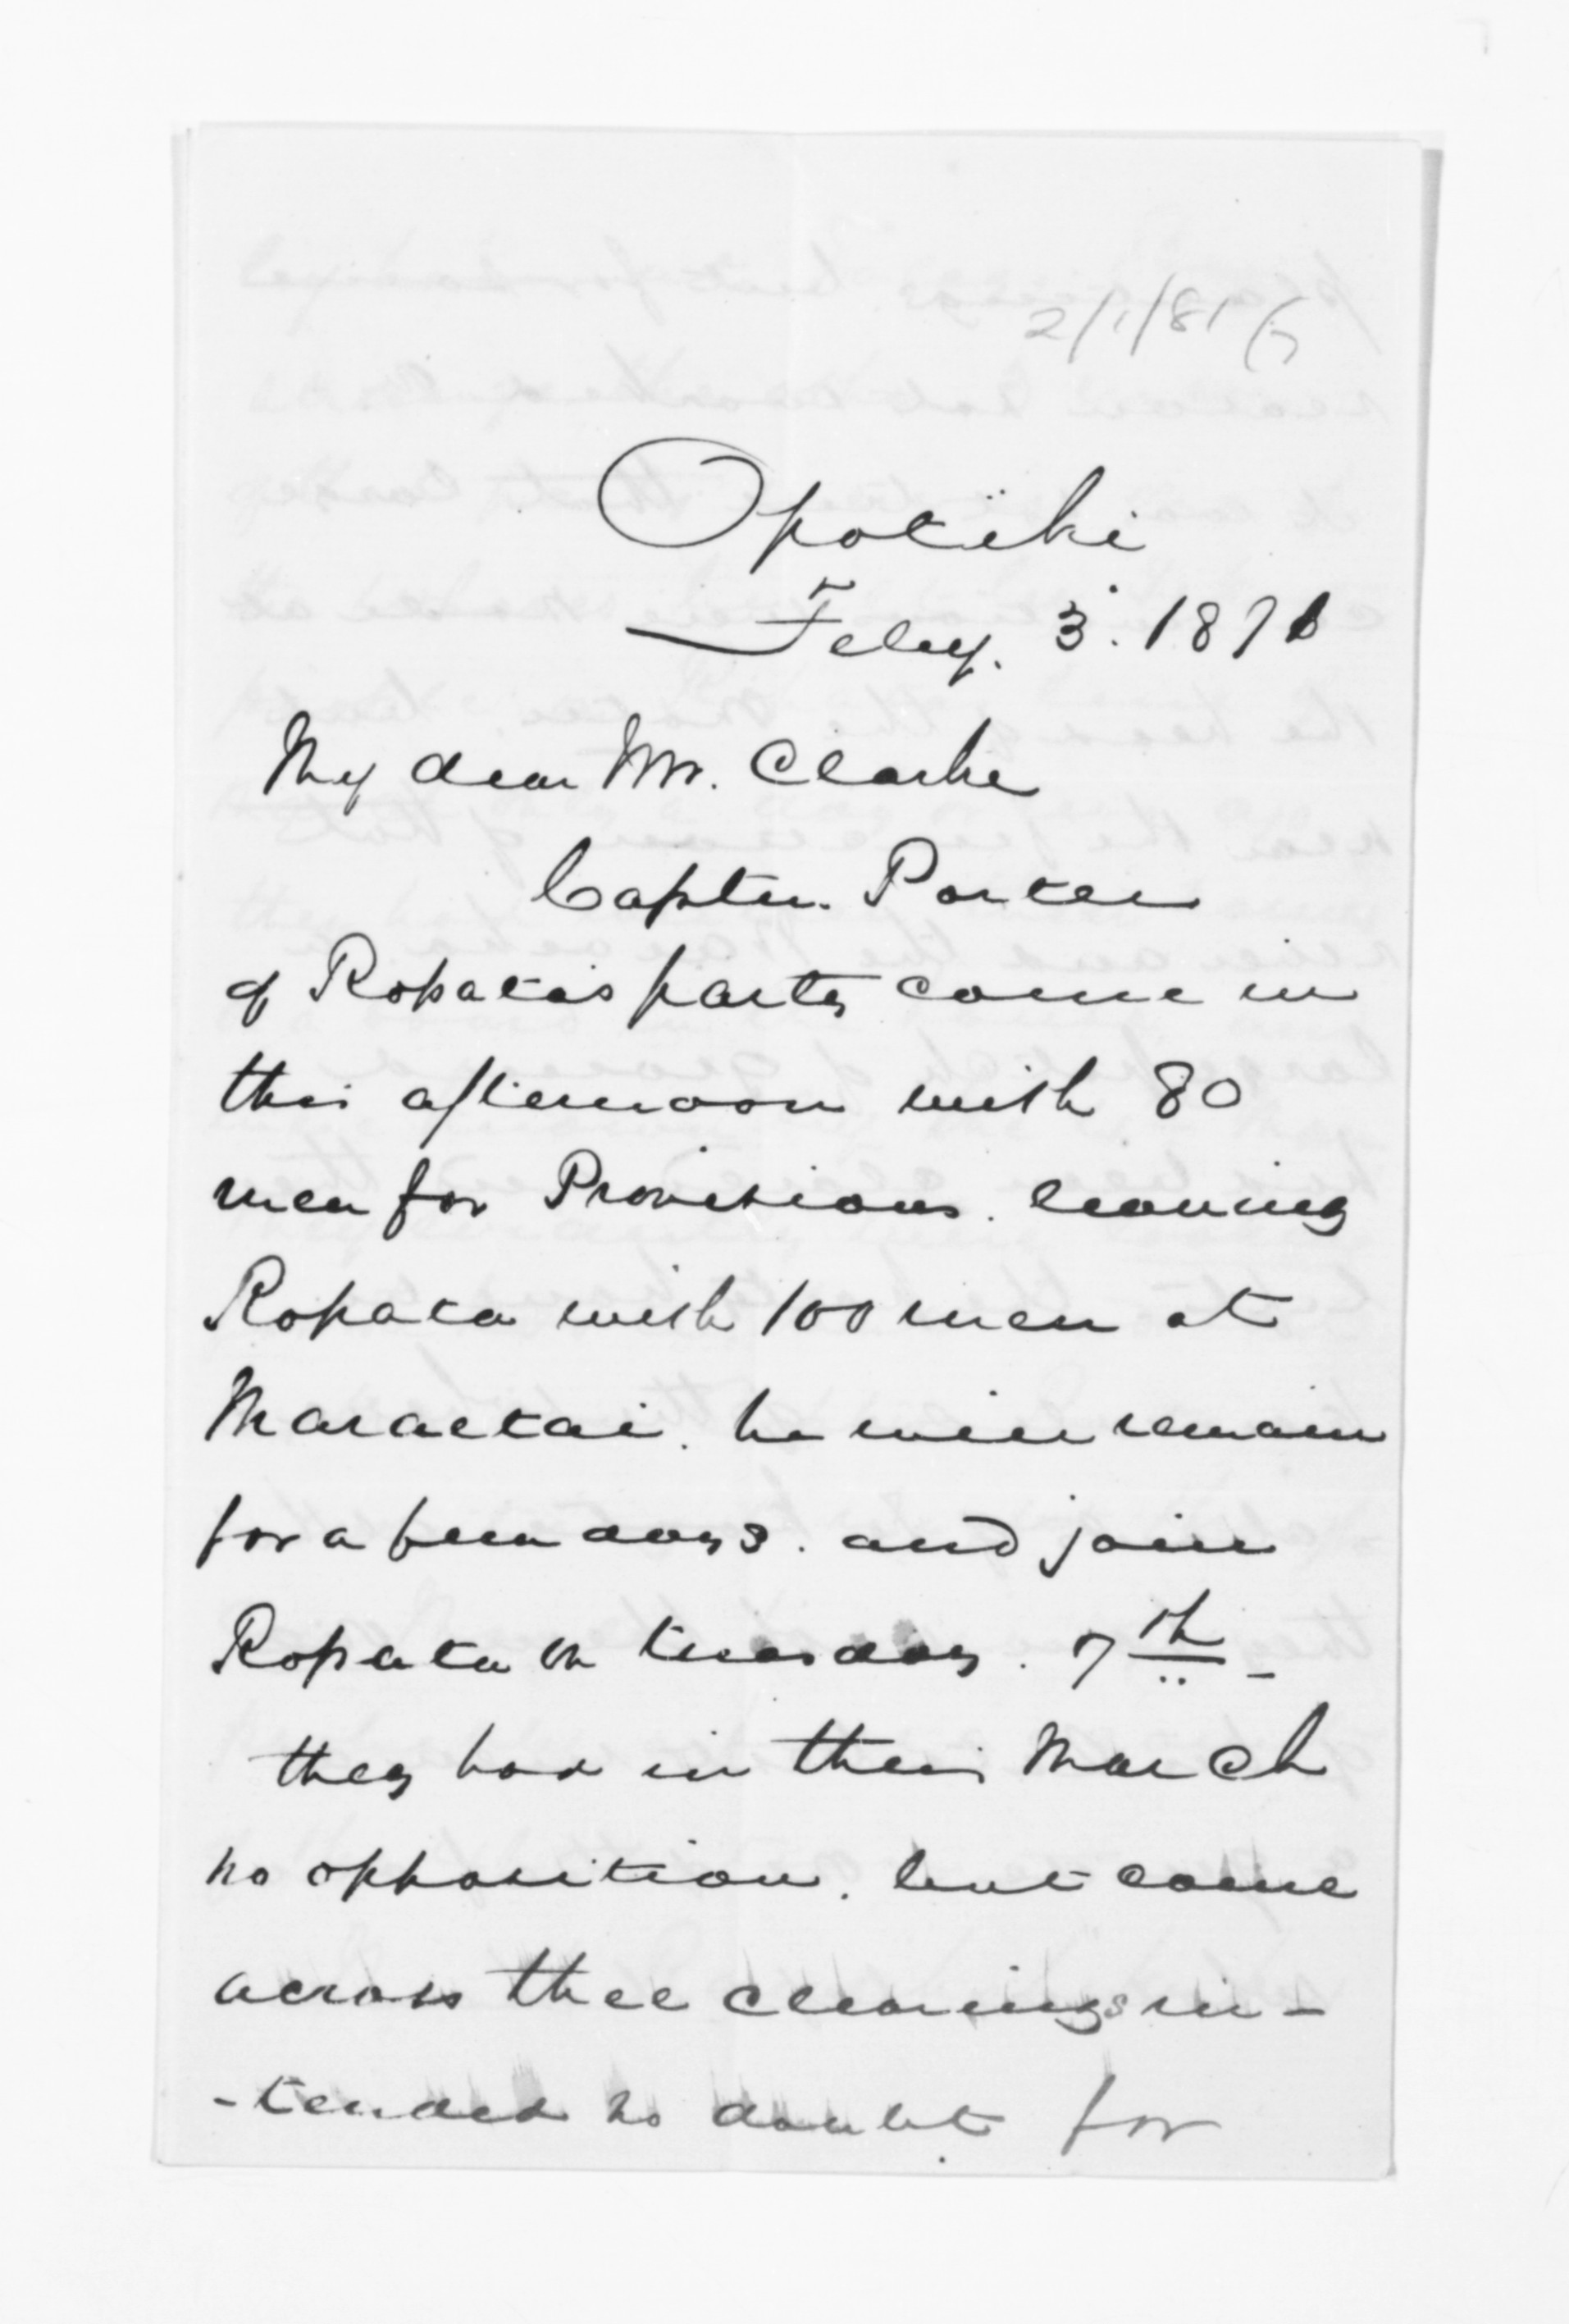 2/1/81
Opotiki
Feby. 3. 1871
My dear Mr. Clarke
Captn. Porter
of Ropata's party came in
this afternoon with 80
men for Provisions. leaving
Ropata with 100 men at
Maraetai. he will remain
for a few days. and join
Ropata on tuesday. 7th -
they had in their March
no opposition. but came
across three clearings in-
-tended no doubt for